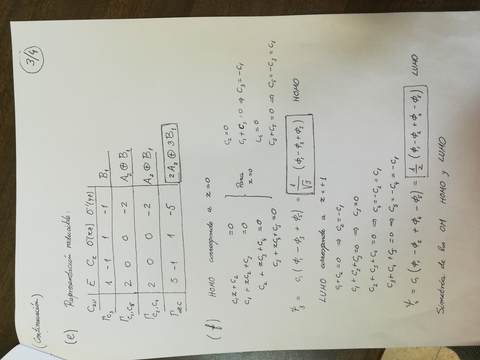 (Continuación)
3/4
(e) Representación reducible:
C2v E C2 σ(xz) σ'(yz)
Γc3 1 -1 1 -1 B1
Γc1,c5 2 0 0 -2 A2 ⊕ B1
Γc2,c4 2 0 0 -2 A2 ⊕ B1
Γrec 5 -1 1 -5 2A2 ⊕ 3B1
(f) HOMO corresponde a x=0
c1x + c2 = 0
c1 + xc2 + c3 = 0
c2 + xc3 + c4 = 0
c3 + xc4 + c5 = 0
Para x=0
c2 = 0
c1 + c3 = 0 ⇒ c3 = -c1
c4 = 0
c3 + c5 = 0 ⇒ c5 = -c3 = c1
ψ3 = c1(ϕ1 - ϕ3 + ϕ5) = 1/√3 (ϕ1 - ϕ3 + ϕ5) HOMO
LUMO corresponde a x=+1
c1 + c2 = 0 ⇒ c2 = -c1
c1 + c2 + c3 = 0 ⇒ c3 = 0
c2 + c3 + c4 = 0 ⇒ c4 = -c2 = c1
c3 + c4 + c5 = 0 ⇒ c5 = -c4 = -c1
ψ4 = c1(ϕ1 - ϕ2 + ϕ4 - ϕ5) = 1/2 (ϕ1 - ϕ2 + ϕ4 - ϕ5) LUMO
Simetría de los OM HOMO y LUMO